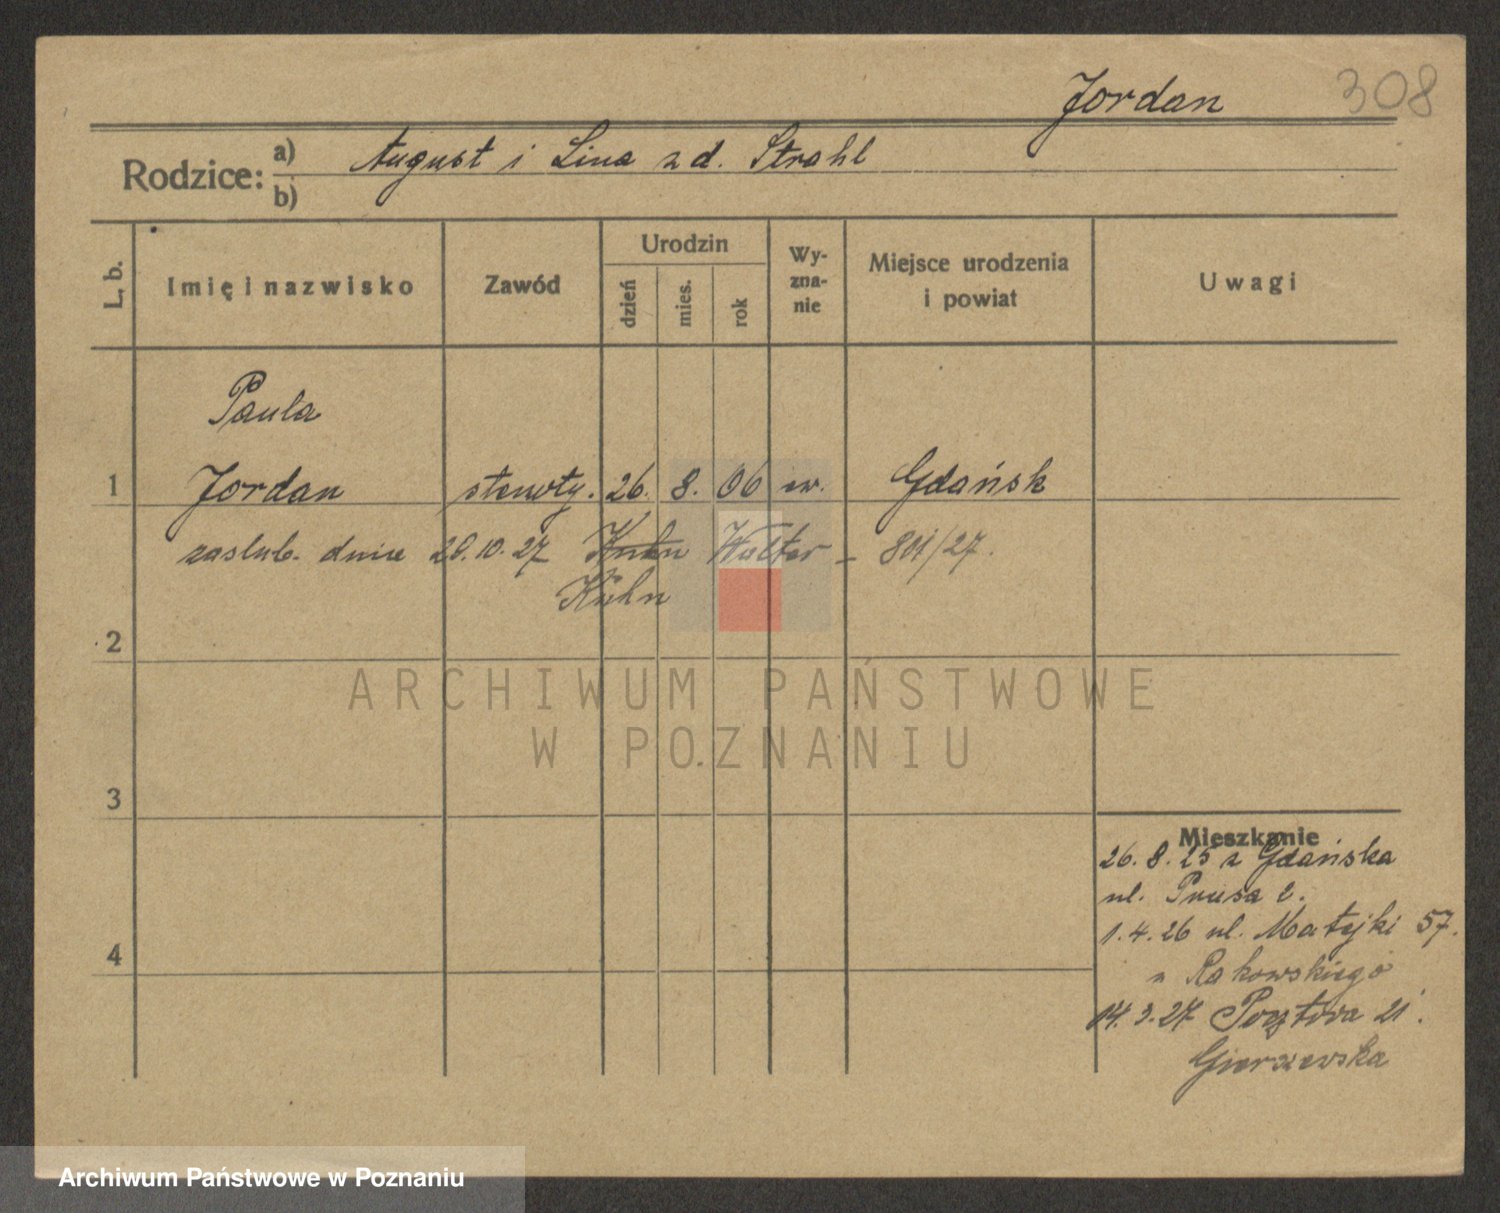 Jordan 308
Rodzice: a) August i Lina z d. Strahl
b)
L. b. Imię i nazwisko Zawód Urodzin dzień mies. rok Wy-zna-nie Miejsce urodzenia i powiat Uwagi
Paula
1 Jordan stenoty. 26. 8. 06 ew. Gdańsk
zaślub. dnia 28.10.27 Kuhn Walter – 801/27.
Kühn
2
ARCHIWUM PAŃSTWOWE
W POZNANIU
3
Mieszkanie
26. 8. 25 z Gdańska
ul. Prusa 2.
1. 4. 26 ul. Matejki 57.
4
u Rakowskiego
14. 3. 27 Pocztowa 21.
Gierszewska
Archiwum Państwowe w Poznaniu